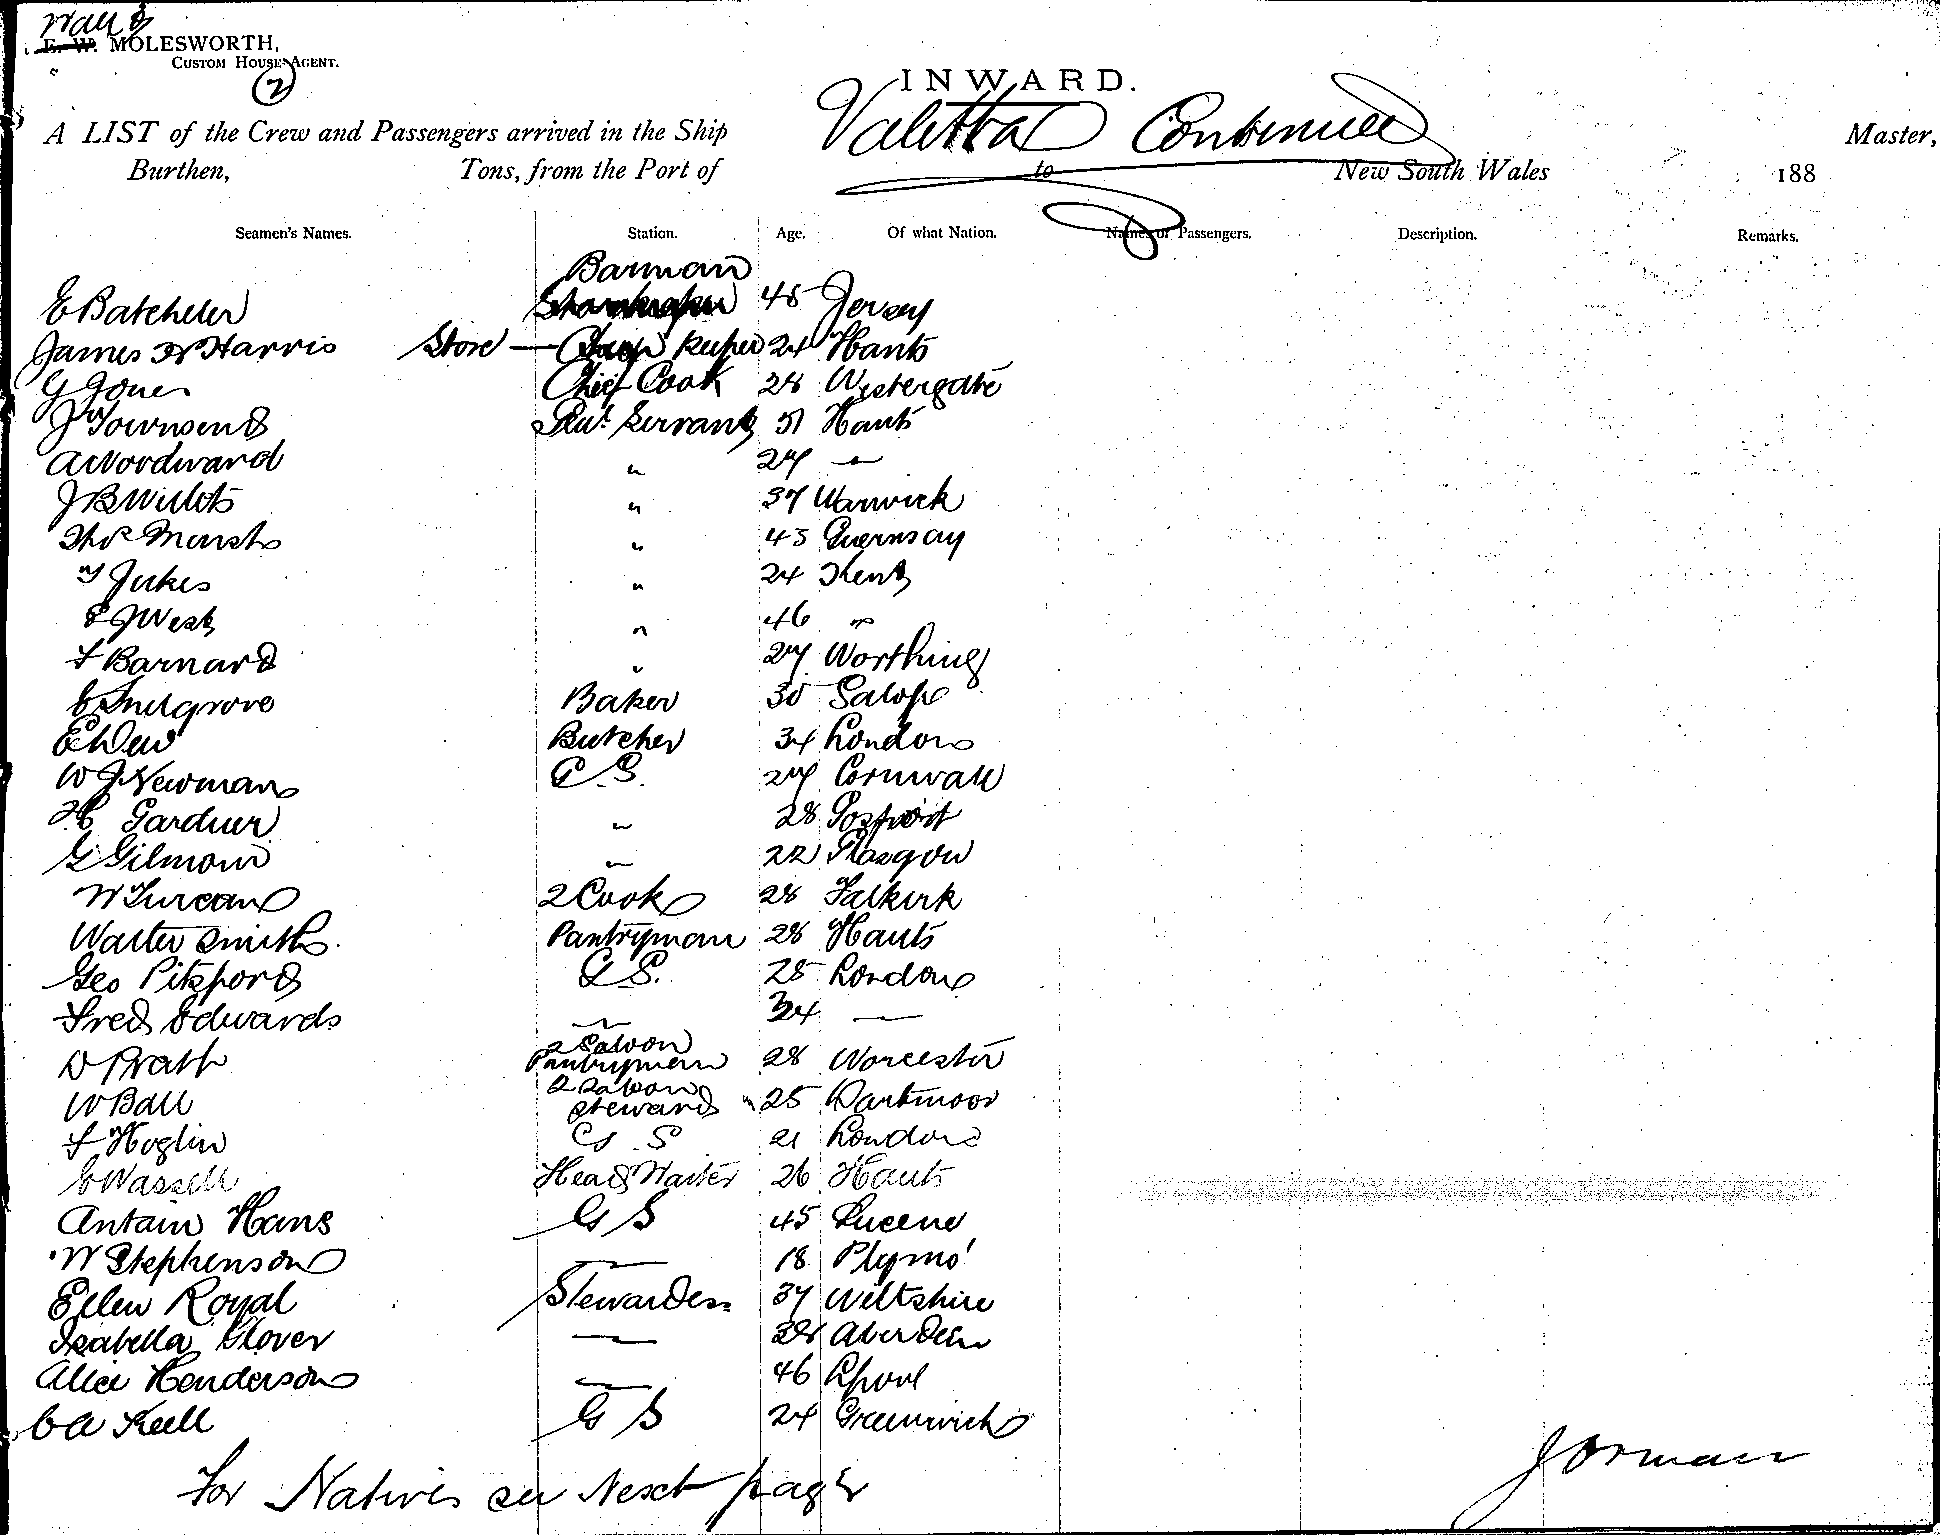 E. W. MOLESWORTH,
CUSTOM HOUSE AGENT.
2
INWARD.
A LIST of the Crew and Passengers arrived in the Ship Valetta Continued Master,
Burthen, Tons, from the Port of to New South Wales 188
Seamen's Names. Station. Age. Of what Nation. Names of Passengers. Description. Remarks.
Barman
E Batcheler 45 Jersey
James W Harris Store — keeper 24 Hants
G Jones Chief Cook 28 Westergate
J Townsend Servants 51 Hants
A Woodward " 27 —
J B Willets " 37 Warwick
Thos " 43 Guernsay
W Jukes " 24 Kent
E J West " 46 "
F Barnard " 27 Worthing
C Snelgrove Baker 30 Salop
E Dew Butcher 34 London
W J Newman G S. 27 Cornwall
H Gardner " 28 Gosport
G Gilmour " 22 Glasgow
W 2 Cook 28 Falkirk
Walter Smith Pantryman 28 Hants
Geo Pitsford G S. 25 London
Fred Edwards — 34 —
D Pratt 2 Saloon Pantryman 28 Worcester
W Ball 2 Saloon Steward 25 Dartmoor
F Hoglin G S 21 London
C Wassell Head Waiter 26 Hants
Antain Hans G S 45 Lucene
W Stephenson — 18 Plymo'
Ellen Royal Stewardess 37 Wiltshire
Isabella Glover — Aberdeen
Alice Henderson — 46 Lpool
C A Keell G S 24 Greenwich
For Natives see Next page
J Orman